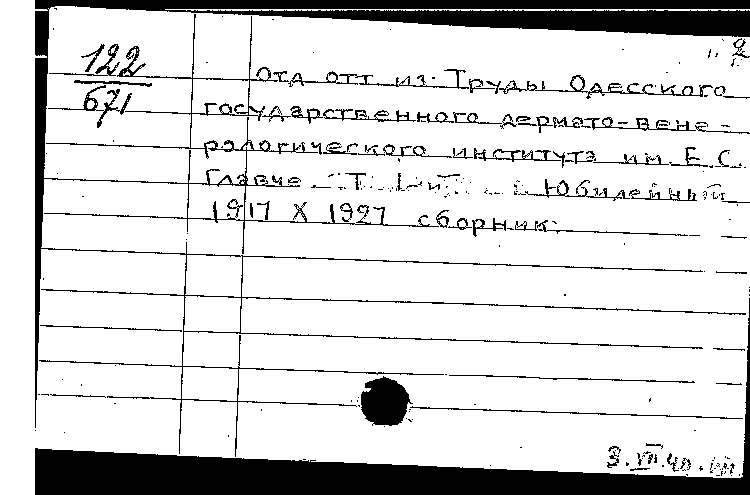 122
671
Отд отт из: Труды Одесского
государственного дермато-вене-
рологического института им. Е. С.
Главче Юбилейный
1917 X 1927 сборник.
3.VII.40.